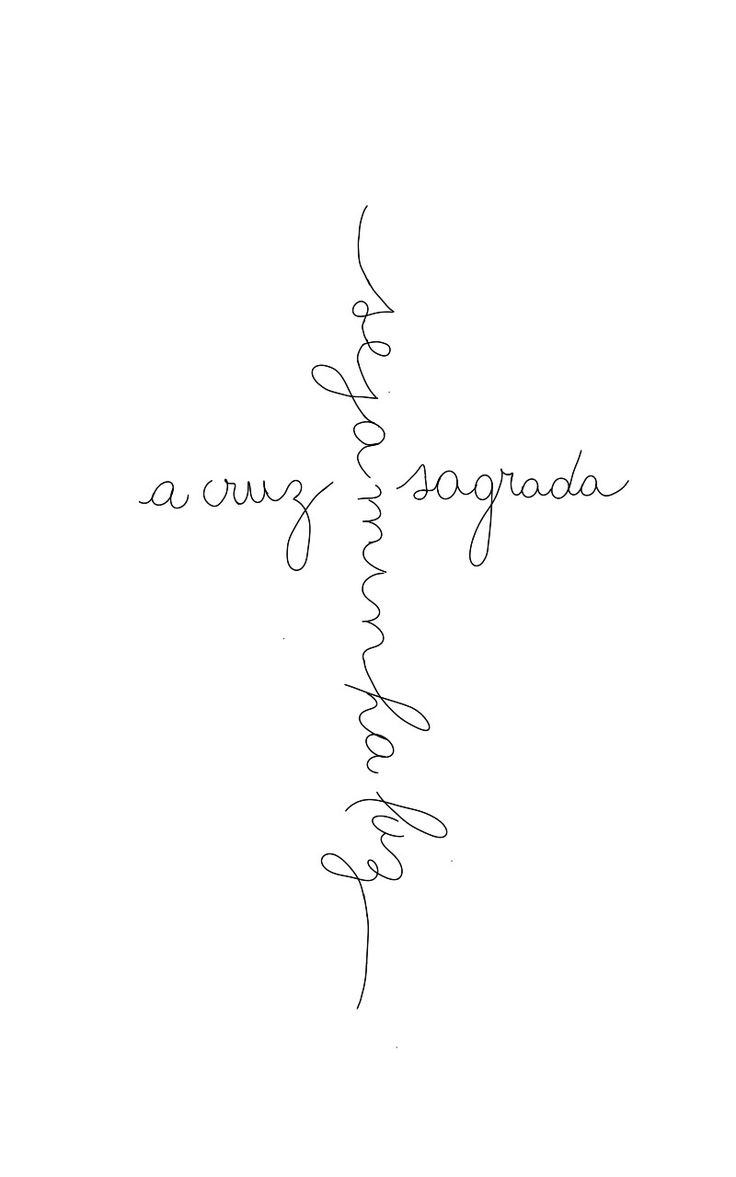 a cruz sagrada
seja minha luz